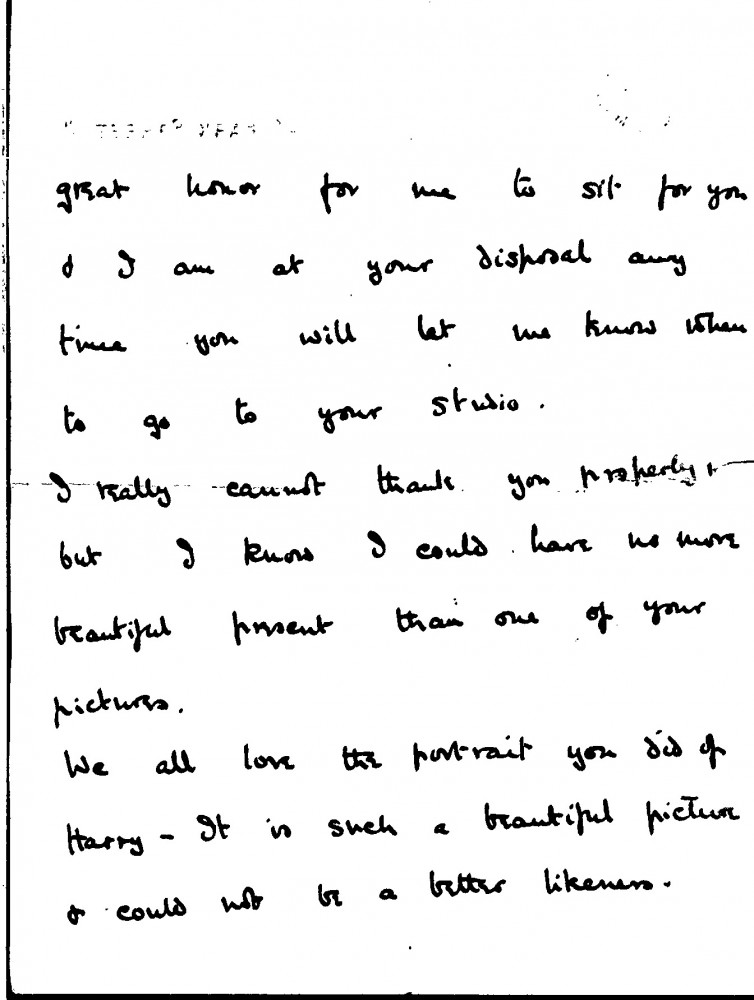 great honor for me to sit for you
& I am at your disposal any
time you will let me know when
to go to your studio.
I really cannot thank you properly,
but I know I could have no more
beautiful present than one of your
pictures.
We all love the portrait you did of
Harry - It is such a beautiful picture
& could not be a better likeness.